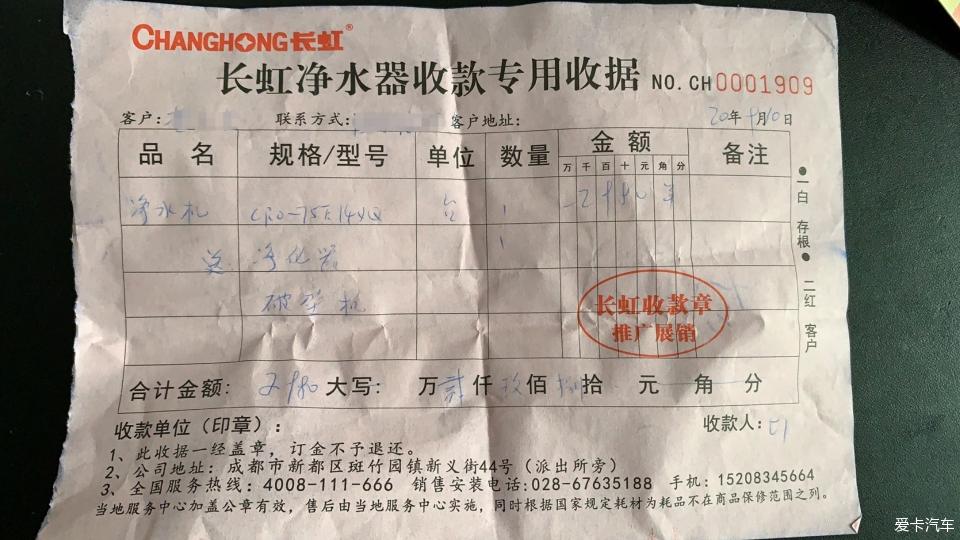 CHANGHONG长虹®
长虹净水器收款专用收据 NO.CH0001909
客户: 联系方式: 客户地址: 20年 月10日
品名 规格/型号 单位 数量 金额 备注
万 千 百 十 元 角 分
净水机 台 1
净化器 1
破壁机
长虹收款章
推广展销
合计金额: 2980 大写: 万贰仟玖佰捌拾 元 角 分
收款单位(印章): 收款人:
1、此收据一经盖章,订金不予退还。
2、公司地址:成都市新都区斑竹园镇新义街44号(派出所旁)
3、全国服务热线:4008-111-666 销售安装电话:028-67635188 手机:15208345664
当地服务中心加盖公章有效,售后由当地服务中心实施,同时根据国家规定耗材为耗品不在商品保修范围之列。
●一白 存根● 二红 客户
爱卡汽车